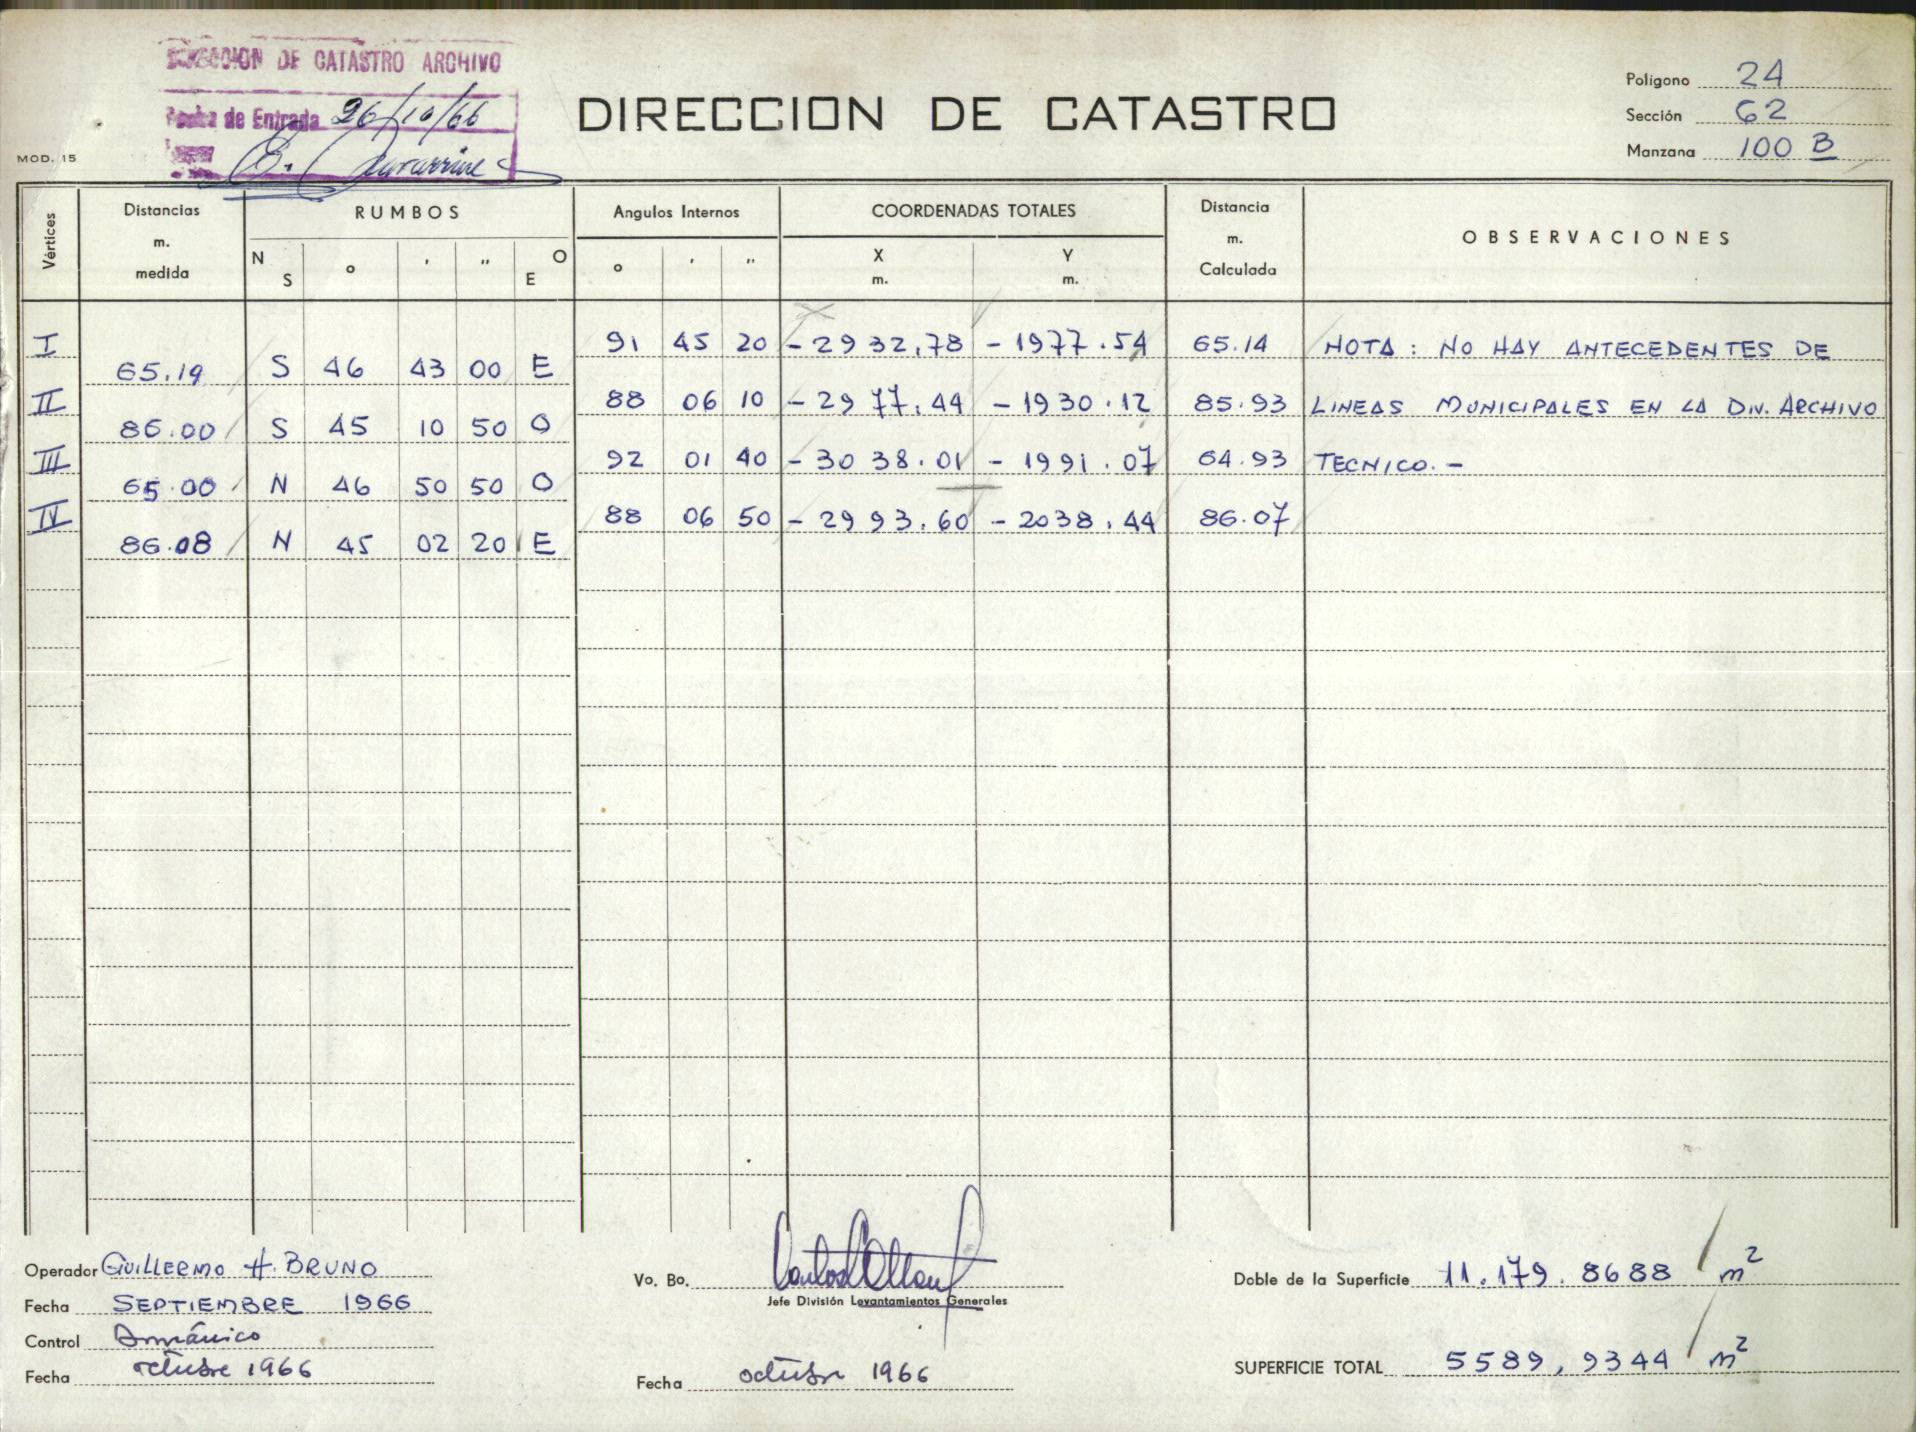 DIRECCION DE CATASTRO ARCHIVO
Fecha de Entrada 26/10/66
MOD. 15
DIRECCION DE CATASTRO
Polígono 24
Sección 62
Manzana 100 B
Vértices
Distancias m. medida
RUMBOS
N S ° ' " O E
Angulos Internos
° ' "
COORDENADAS TOTALES
X m. Y m.
Distancia m. Calculada
OBSERVACIONES
I 91 45 20 -2932.78 -1977.54 65.14 NOTA: NO HAY ANTECEDENTES DE
65.19 S 46 43 00 E
II 88 06 10 -2977.44 -1930.12 85.93 LINEAS MUNICIPALES EN LA DIV. ARCHIVO
86.00 S 45 10 50 O
III 92 01 40 -3038.01 -1991.07 64.93 TECNICO.-
65.00 N 46 50 50 O
IV 88 06 50 -2993.60 -2038.44 86.07
86.08 N 45 02 20 E
Operador GUILLERMO H. BRUNO
Fecha SEPTIEMBRE 1966
Control
Fecha octubre 1966
Vo. Bo.
Jefe División Levantamientos Generales
Fecha octubre 1966
Doble de la Superficie 11.179.8688 m²
SUPERFICIE TOTAL 5589,9344 m²